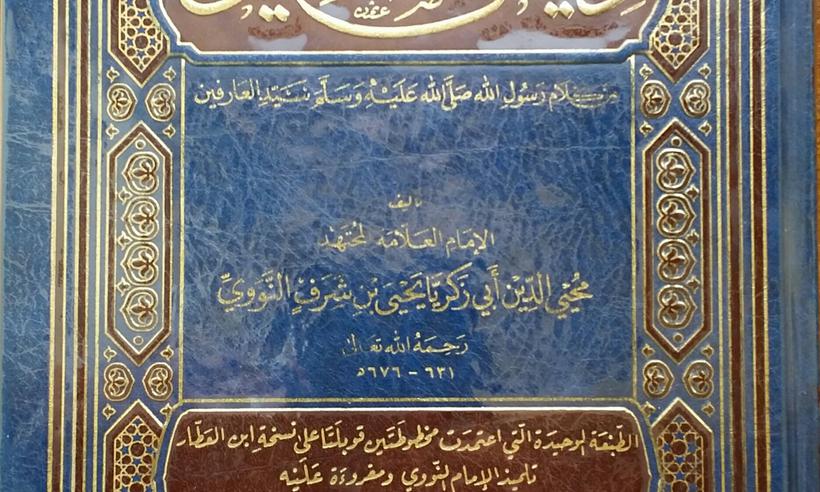 من كلام رسول الله صلى الله عليه وسلم سيد العارفين
تأليف
الإمام العلامة المجتهد
محيي الدين أبي زكريا يحيى بن شرف النووي
رحمه الله تعالى
٦٣١ - ٦٧٦ھ
الطبعة الوحيدة التي اعتمدت مخطوطتين قوبلتا على نسخة ابن العطار
تلميذ الإمام النووي ومقروءة عليه